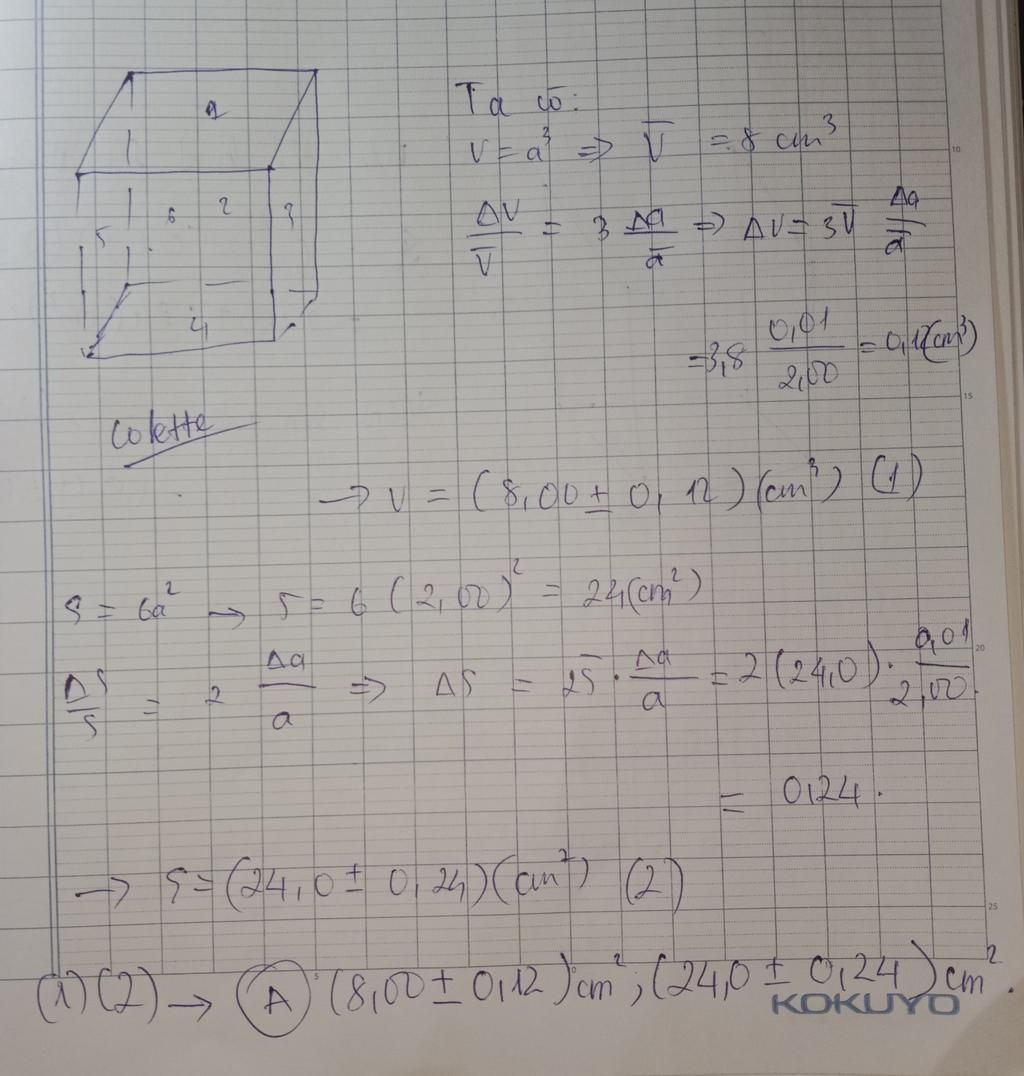 1
6 2 3
5
4
Ta có:
V = a³ => V̄ = 8 cm³
ΔV/V̄ = 3 Δa/ā => ΔV = 3V̄ Δa/ā
= 3,8 0,01/2,00 = 0,12(cm³)
Colette
→ V = (8,00 ± 0,12)(cm³) (1)
S = 6a² → S = 6(2,00)² = 24(cm²)
ΔS/S = 2 Δa/a => ΔS = 2S̄ · Δa/a = 2(24,0) · 0,01/2,00
= 0,24.
→ S = (24,0 ± 0,24)(cm²) (2)
(1)(2) → A (8,00 ± 0,12)cm²; (24,0 ± 0,24)cm².
KOKUYO
10
15
20
25
5